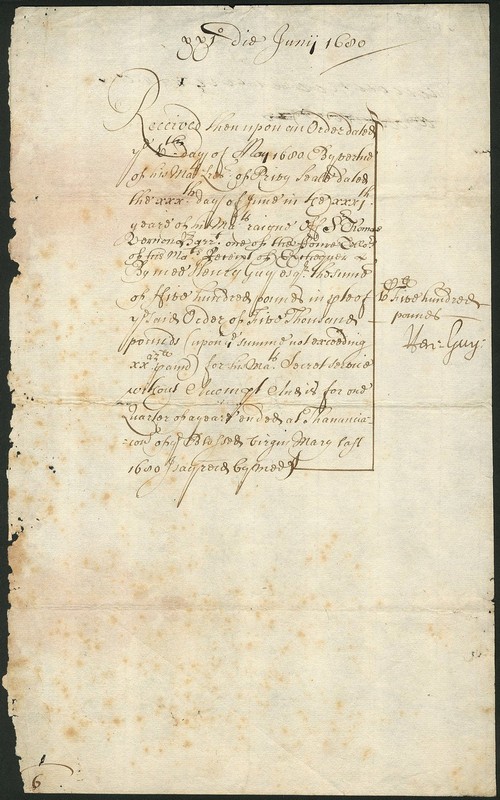 die Junij 1680
Received then upon an Order dated
ye 6th day of May 1680 By vertue
of his Mats Lres of Privy Seale dated
the xxxth day of June in the xxxjth
yeare of his Mats raigne of Sr Thomas
Vernon one of the foure Tellers
of his Mats Receipt of Exchequer
By mee Henry Guy esqr the summe
of Five hundred pounds in pte of
ye said Order of Five Thousand
pounds (upon ye summe not exceeding
paind) for his Mats Secret service
without Accompt And is for one
Quarter of a yeare ended at Thanuncia-
-con of ye Blessed Virgin Mary last
1680 I say reced by mee
Five hundred
pounds
Hen: Guy
6